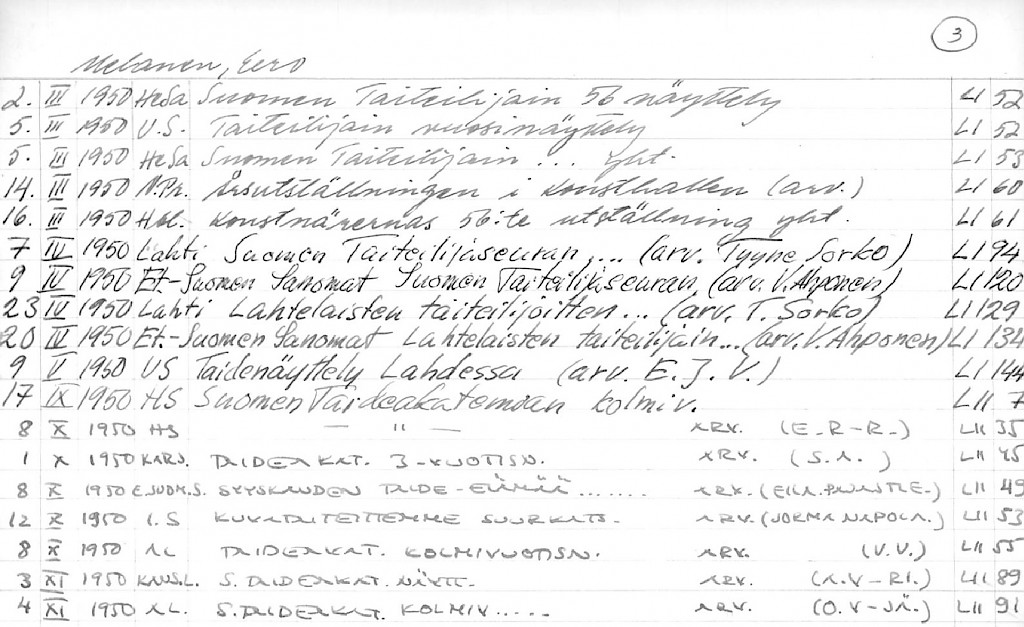 3
Nelanen, Eero
2. III 1950 HeSa Suomen Taiteilijain 56 näyttely LI 52
5. III 1950 U.S. Taiteilijain vuosinäyttely LI 52
5. III 1950 HeSa Suomen Taiteilijain ... yht. LI 53
14. III 1950 N.Pr. Årsutställningen i Konsthallen (arv.) LI 60
16. III 1950 Hbl. Konstnärernas 56:te utställning yht. LI 61
7 IV 1950 Lahti Suomen Taiteilijaseuran ... (arv. Tyyne Sorko) LI 94
9 IV 1950 Et-Suomen Sanomat Suomen Taiteilijaseuran (arv. V. Ahponen) LI 120
23 IV 1950 Lahti Lahtelaisten taiteilijoitten ... (arv. T. Sorko) LI 129
20 IV 1950 Et.-Suomen Sanomat Lahtelaisten taiteilijain ... (arv. V. Ahponen) LI 134
9 V 1950 US Taidenäyttely Lahdessa (arv. E. J. V.) LI 144
17 IX 1950 HS Suomen Taideakatemian kolmiv. LII 7
8 X 1950 HS — " — ARV. (E-R-R-) LII 35
1 X 1950 KARJ. TAIDEAKAT. 3-VUOTISN. ARV. (S.A.) LII 45
8 X 1950 E.SUOM.S. SYYSKAUDEN TAIDE-ELÄMÄÄ ....... ARV. LII 49
12 X 1950 I.S KUVATAITEITTEMME SUURKATS. ARV. (JORMA NAPOLA.) LII 53
8 X 1950 AL TAIDEAKAT. KOLMIVUOTISN. ARV. (V.V.) LII 55
3 XI 1950 KANS.L. S.TAIDEAKAT. NÄYTT. ARV. (A.V-RI.) LII 89
4 XI 1950 AL. S.TAIDEAKAT. KOLMIV..... ARV. (O.V-JÄ.) LII 91